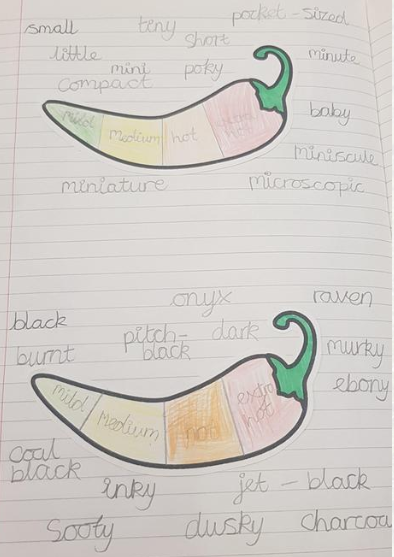 small tiny pocket-sized
short
little minute
mini poky
compact
mild medium hot extra hot
baby
miniscule
miniature microscopic
onyx raven
black
pitch-black dark
burnt murky
ebony
mild medium hot extra hot
coal black
inky jet-black
sooty dusky charcoa